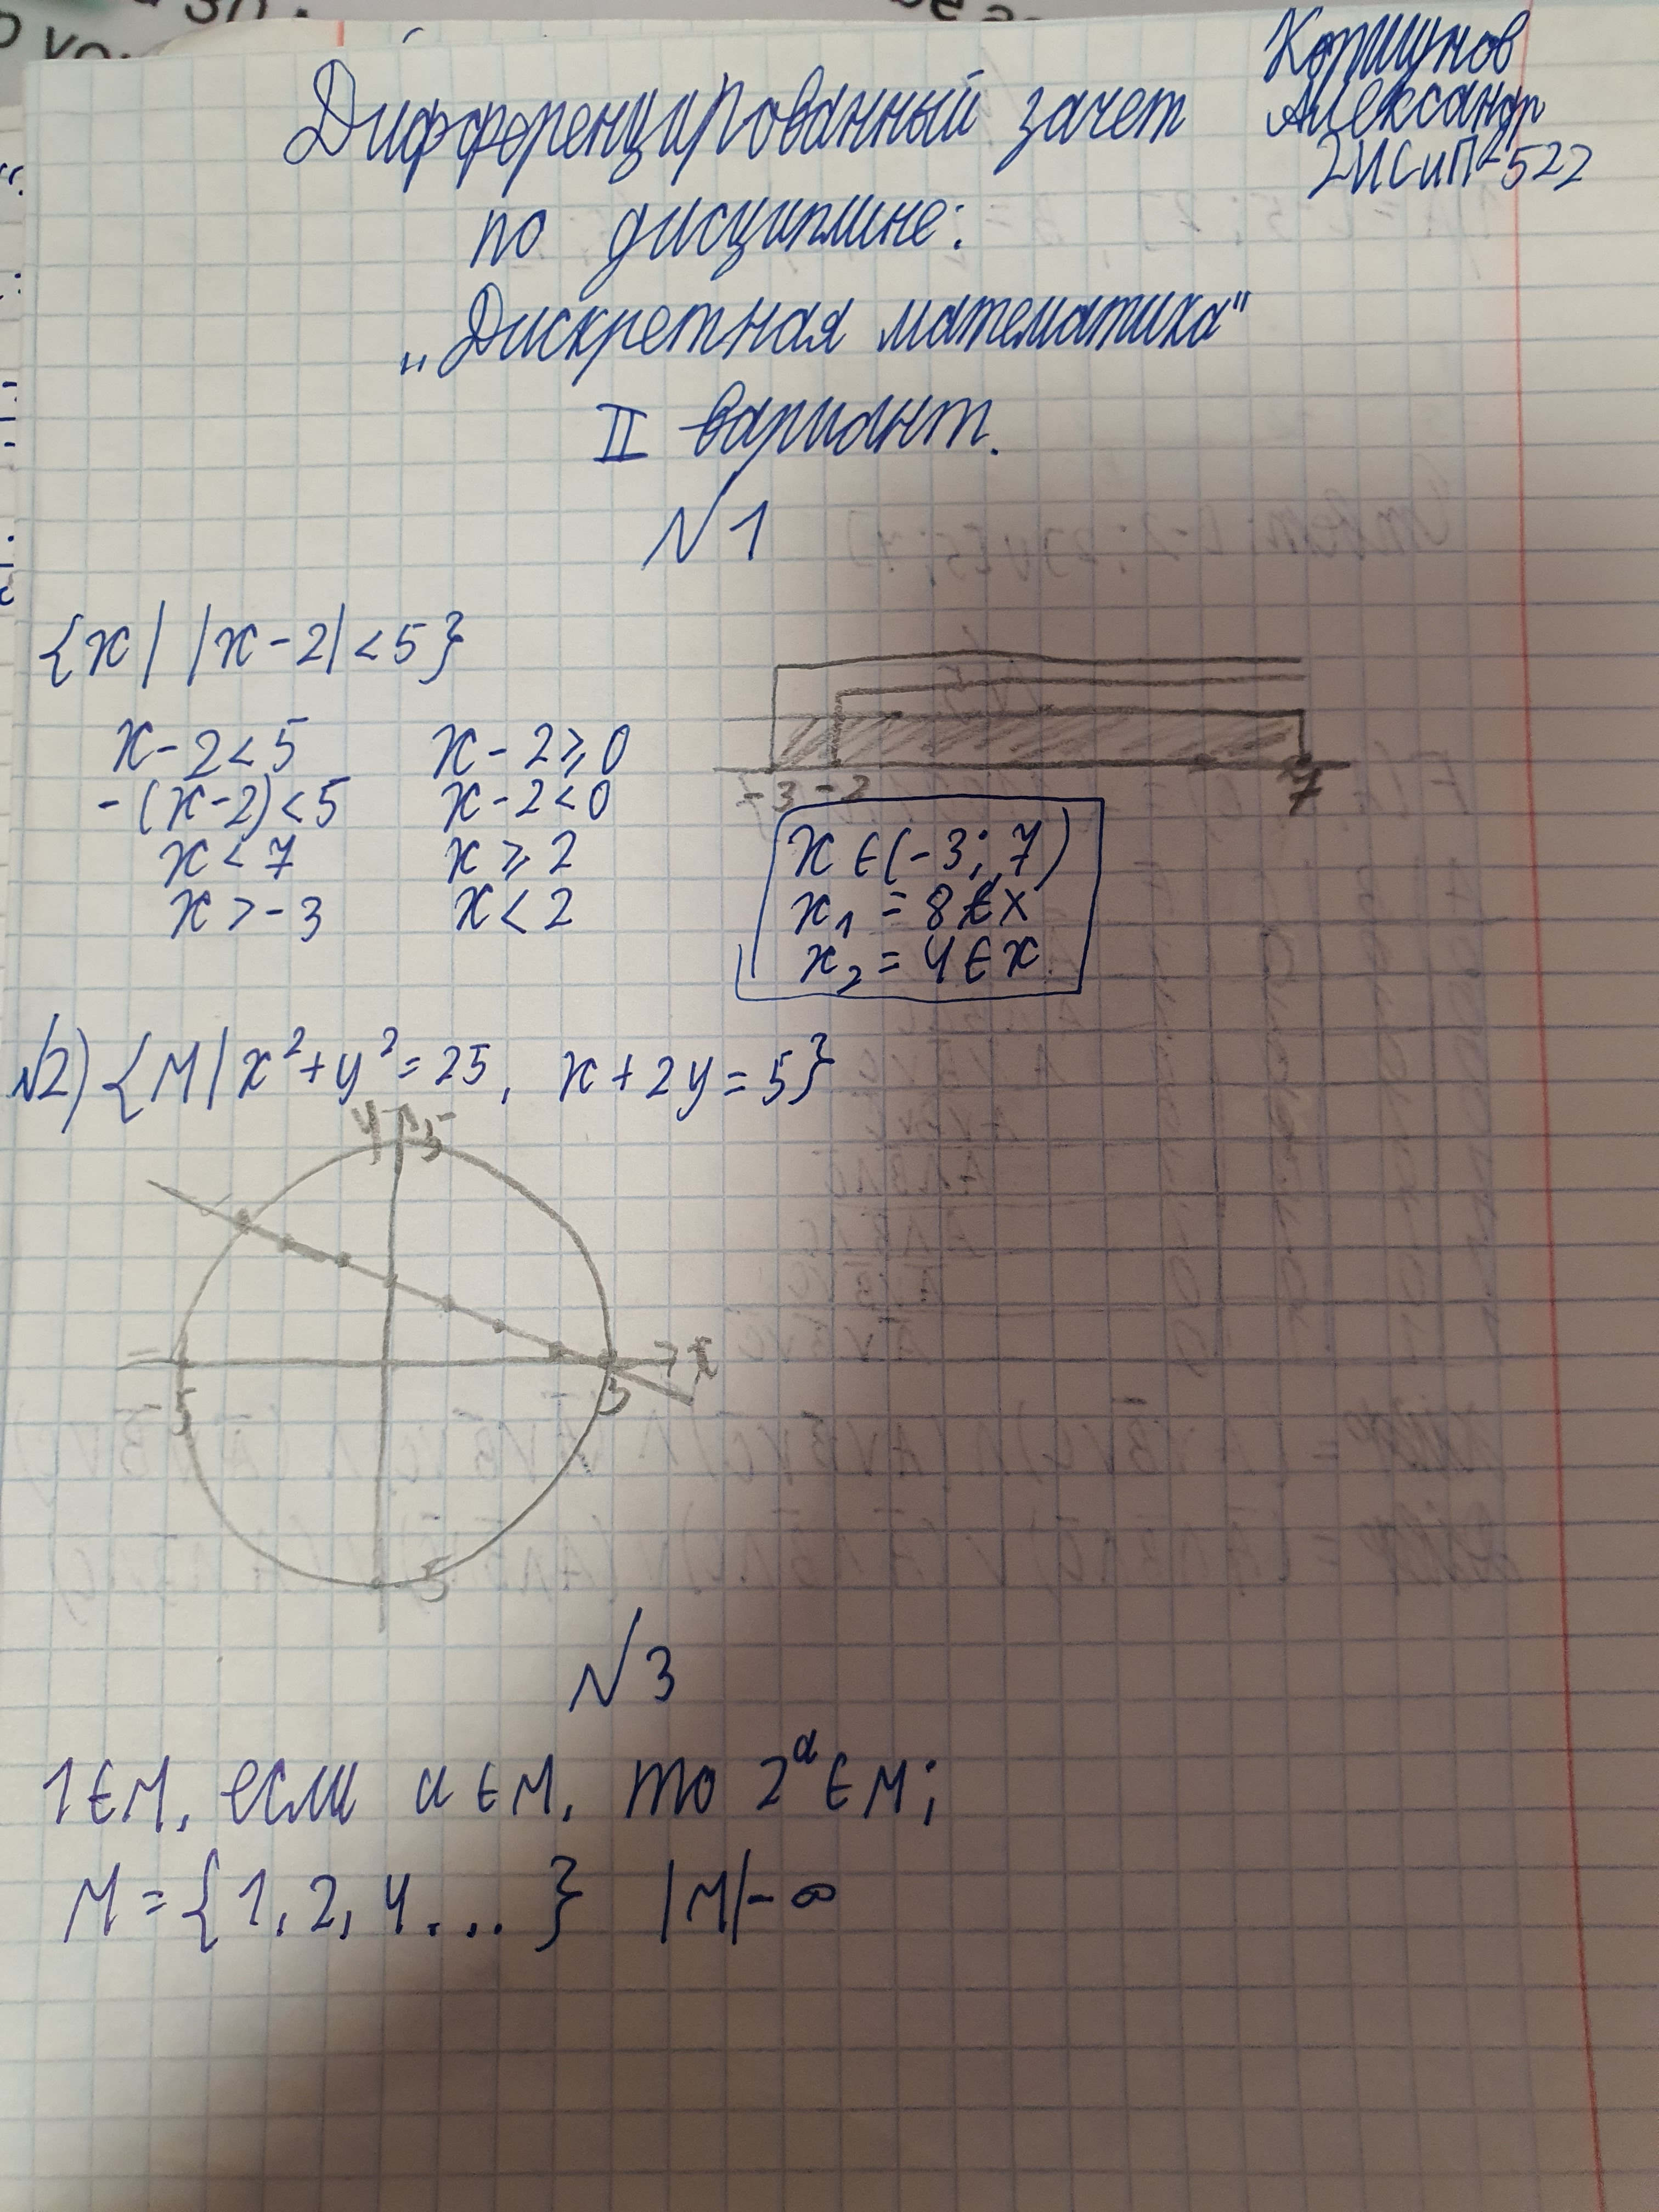 Коршунов
Александр
2ИСиП-522
Дифференцированный зачет
по дисциплине:
„Дискретная математика"
II вариант.
№1
{x| |x-2|<5}
x-2<5 x-2⩾0
-(x-2)<5 x-2<0
x<7 x⩾2
x>-3 x<2
-3 -2 7
x∈(-3; 7)
x₁ = 8∉x
x₂ = 4∈x
№2) {M| x²+y²=25, x+2y=5}
y 5
x
-5 5
5
№3
1∈M, если a∈M, то 2ᵃ∈M;
M={1, 2, 4...} |M|-∞